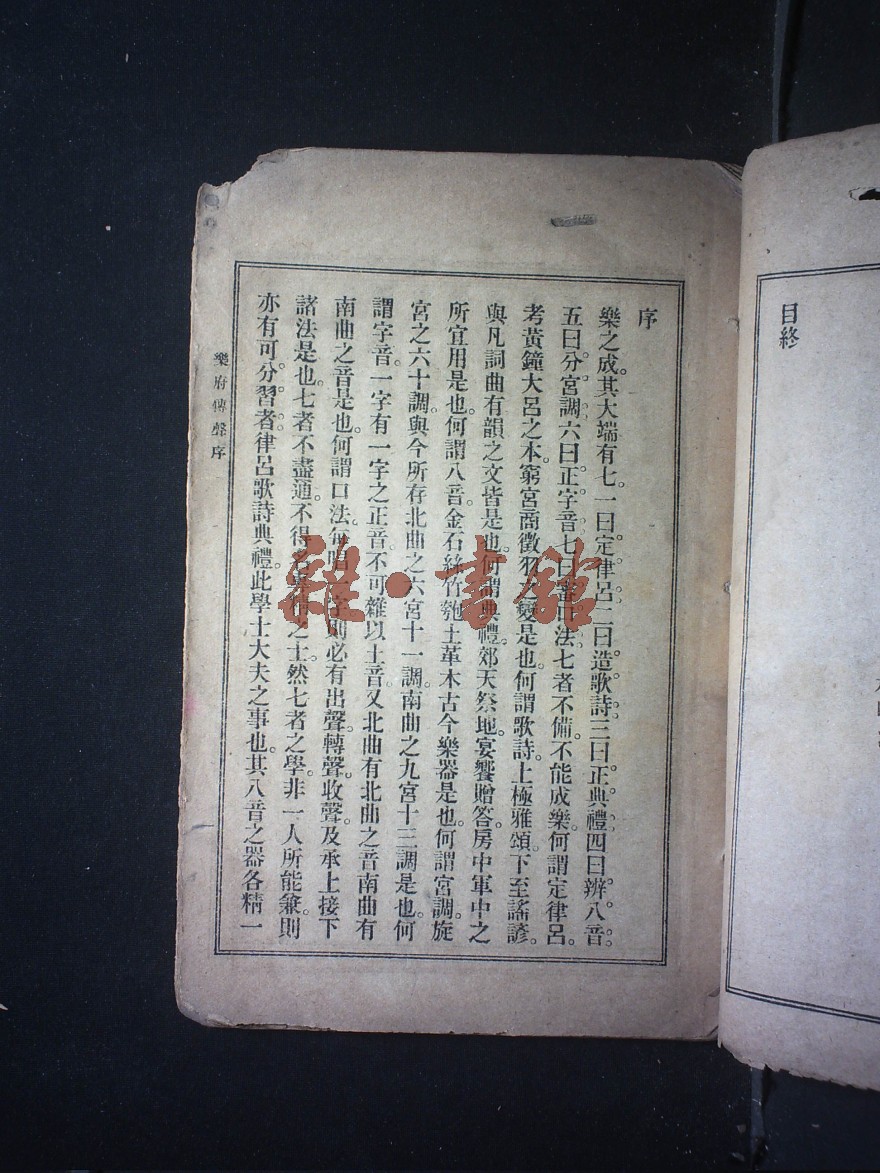 目終
序
樂之成。其大端有七。一曰定律呂。二曰造歌詩。三曰正典禮。四曰辨八音。
五曰分宮調。六曰正字音。七曰口法。七者不備。不能成樂。何謂定律呂。
考黃鐘大呂之本。窮宮商徵羽變是也。何謂歌詩。上極雅頌。下至謠諺。
與凡詞曲有韻之文皆是也。何謂典禮。郊天祭地。宴饗贈答。房中軍中之
所宜用是也。何謂八音。金石絲竹匏土革木古今樂器是也。何謂宮調。旋
宮之六十調。與今所存北曲之六宮十一調。南曲之九宮十三調是也。何
謂字音。一字有一字之正音。不可雜以土音。又北曲有北曲之音。南曲有
南曲之音是也。何謂口法。每唱一字。則必有出聲。轉聲。收聲。及承上接下
諸法是也。七者不盡通。不得名之士。然七者之學。非一人所能兼。則
亦有可分習者。律呂歌詩典禮。此學士大夫之事也。其八音之器各精一
樂府傳聲序
雜·書館